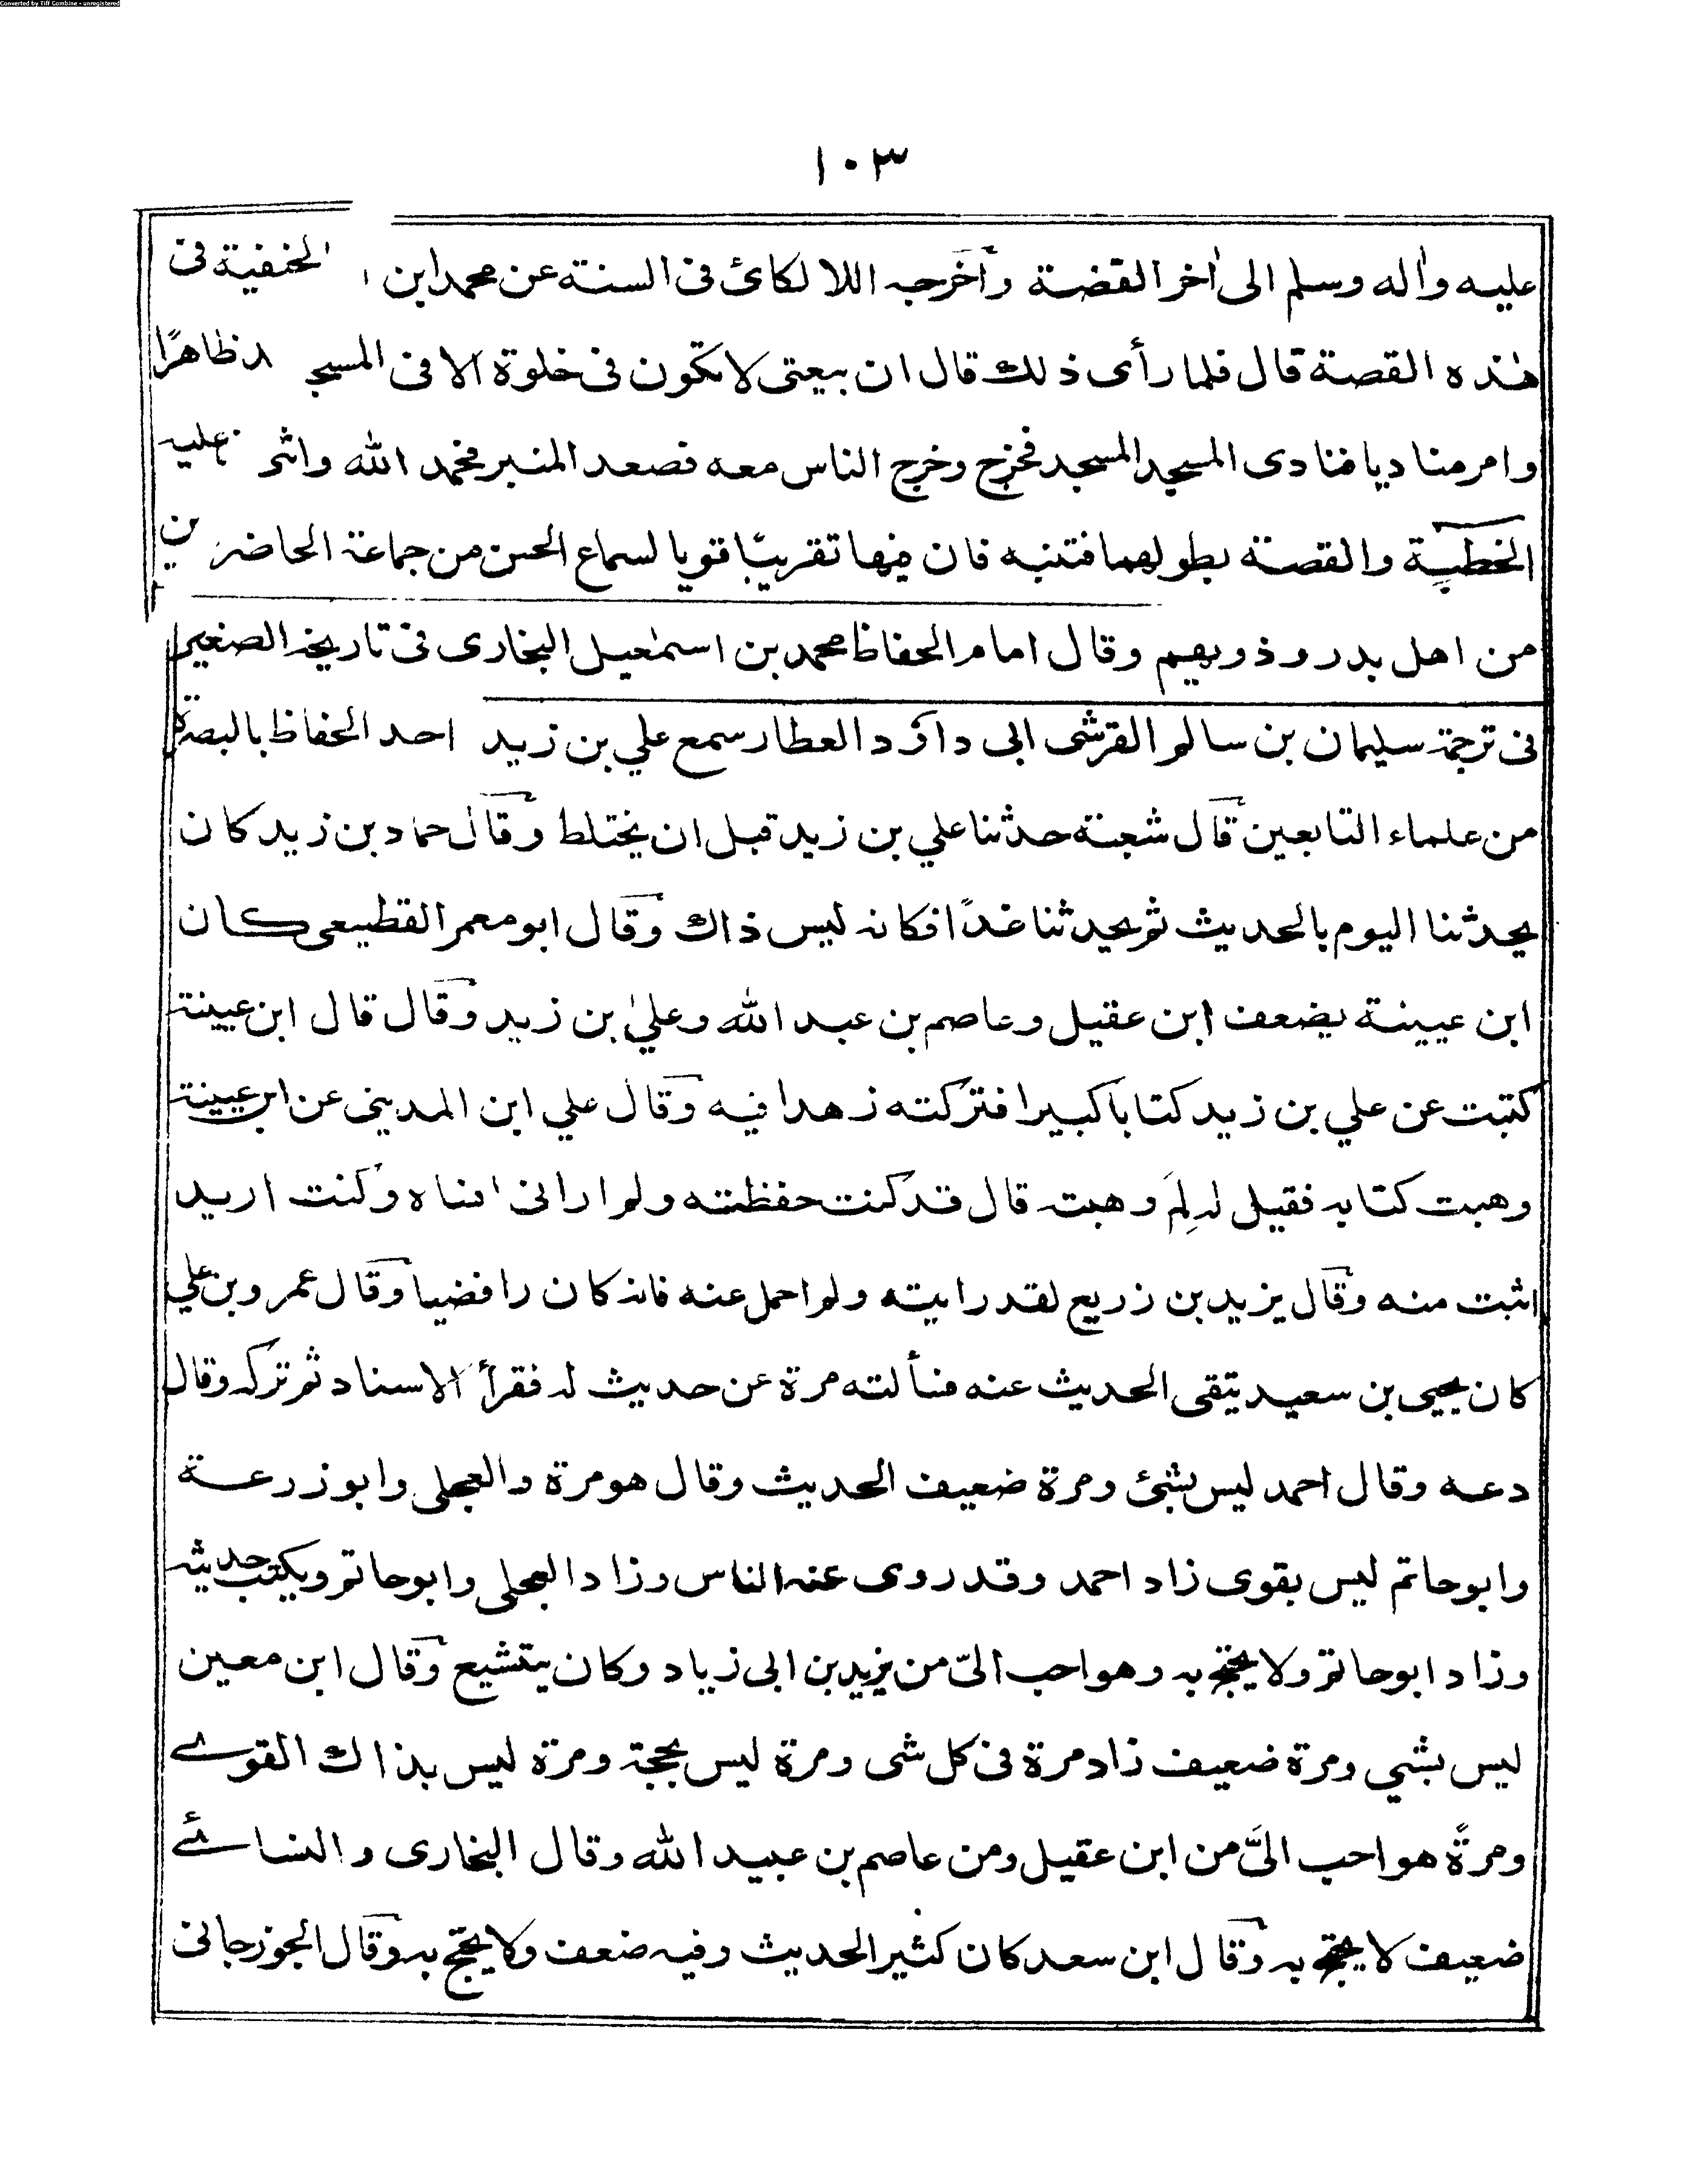 Converted by Tiff Combine - unregistered
١٠٣
عليه واٰله وسلم الى اٰخر القصة وأخرجه اللالكائ فى السنة عن محمد ابن الحنفية فى
هٰذه القصة قال فلما رأى ذلك قال ان بيعتى لا تكون فى خلوة الا فى المسجد ظاهرًا
وامر مناديا فنادى المسجد المسجد فخرج وخرج الناس معه فصعد المنبر فحمد الله واثنى عليه
الخطبة والقصة بطولهما فتنبه فان فيها تقريبًا قويا لسماع الحسن من جماعة الحاضرين
من اهل بدر وذويهم وقال امام الحفاظ محمد بن اسمٰعيل البخارى فى تاريخه الصغير
فى ترجمة سليمان بن سالم القرشى ابى داؤد العطار سمع علي بن زيد احد الحفاظ بالبصرة
من علماء التابعين قال شعبة حدثنا علي بن زيد قبل ان يختلط وقال حماد بن زيد كان
يحدثنا اليوم بالحديث ثم يحدثنا غدًا فكانه ليس ذاك وقال ابو معمر القطيعى كان
ابن عيينة يضعف ابن عقيل وعاصم بن عبد الله وعلي بن زيد وقال قال ابن عيينة
كتبت عن علي بن زيد كتابا كبيرا فتركته زهدا فيه وقال علي ابن المدينى عن ابن عيينة
وهبت كتابه فقيل له لِمَ وهبته قال قد كنت حفظته ولم ارانى انساه وكنت اريد
اثبت منه وقال يزيد بن زريع لقد رايته ولم احمل عنه فانه كان رافضيا وقال عمرو بن علي
كان يحيى بن سعيد يتقى الحديث عنه فسألته مرة عن حديث له فقرأ الاسناد ثم تركه وقال
دعه وقال احمد ليس بشئ ومرة ضعيف الحديث وقال هو مرة والعجلى وابو زرعة
وابو حاتم ليس بقوى زاد احمد وقد روى عنه الناس وزاد العجلى وابو حاتم ويكتب حديثه
وزاد ابو حاتم ولا يحتج به وهو احب الىّ من يزيد بن ابى زياد وكان يتشيع وقال ابن معين
ليس بشي ومرة ضعيف زاد مرة فى كل شى ومرة ليس بحجة ومرة ليس بذاك القوے
ومرةً هو احب الىَّ من ابن عقيل ومن عاصم بن عبيد الله وقال البخارى والنسائے
ضعيف لا يحتج به وقال ابن سعد كان كثير الحديث وفيه ضعف ولا يحتج به وقال الجوزجانى